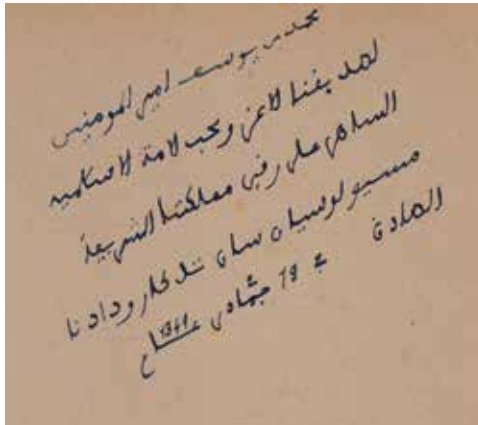 محمد بن يوسف امير المومنين
لصديقنا الاعز ومحب الامة الاسلامية
الساهر على رقي مملكتنا الشريفة
مسيو لوسيان سان تذكار ودادنا
الصادق في 19 جمادى عام